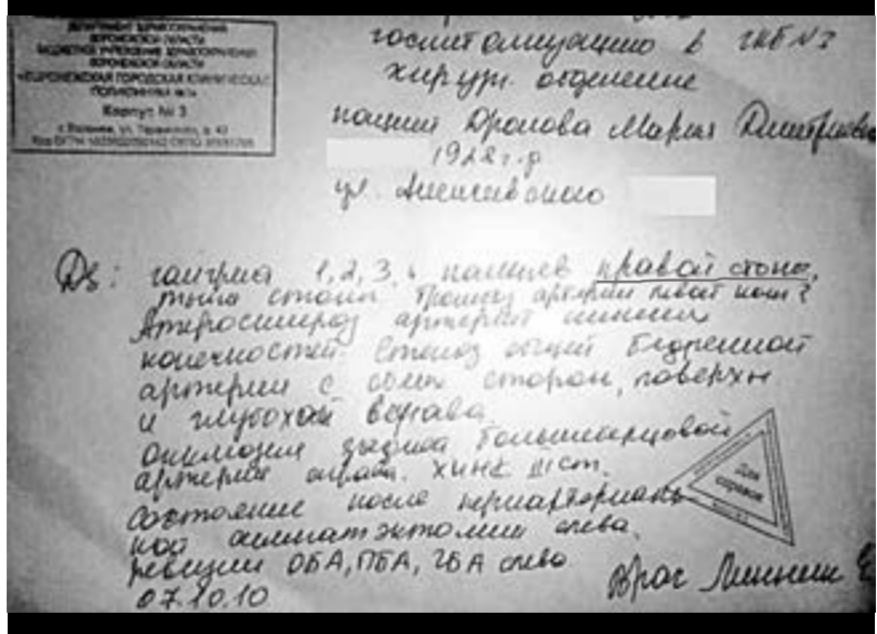 ДЕПАРТАМЕНТ ЗДРАВООХРАНЕНИЯ
ВОРОНЕЖСКОЙ ОБЛАСТИ
БЮДЖЕТНОЕ УЧРЕЖДЕНИЕ ЗДРАВООХРАНЕНИЯ
ВОРОНЕЖСКОЙ ОБЛАСТИ
«ВОРОНЕЖСКАЯ ГОРОДСКАЯ КЛИНИЧЕСКАЯ
ПОЛИКЛИНИКА
Корпус № 3
г. Воронеж, ул.
госпитализацию в ГКБ №3
хирург. отделение
Дронова Мария Дмитриевна
г.р
ул.
Ds: гангрена 1, 2, 3, пальцев правой стопы,
тыла стопы. Тромбоз артерии левой ноги?
Атеросклероз артерий нижних
конечностей. Стеноз общей бедренной
артерии с обеих сторон, поверхн
и глубокой
Окклюзия задней большеберцовой
артерии справа. ХИНК III ст.
Состояние после периартериаль-
ной симпатэктомии слева.
ревизии ОБА, ПБА, ГБА слева
07.10.10
Врач
Для
справок